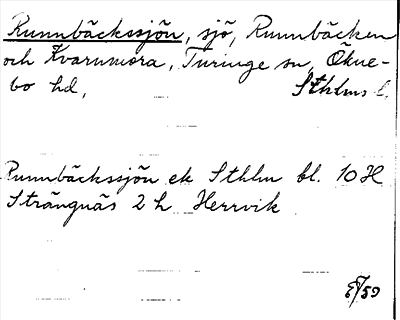 Runnbäckssjön, sjö, Runnbäcken
och Kvarnmora, Turinge sn, Ökne-
bo hd, Sthlms l.
Runnbäckssjön ek Sthlm bl. 10 H
Strängnäs 2 h Herrvik